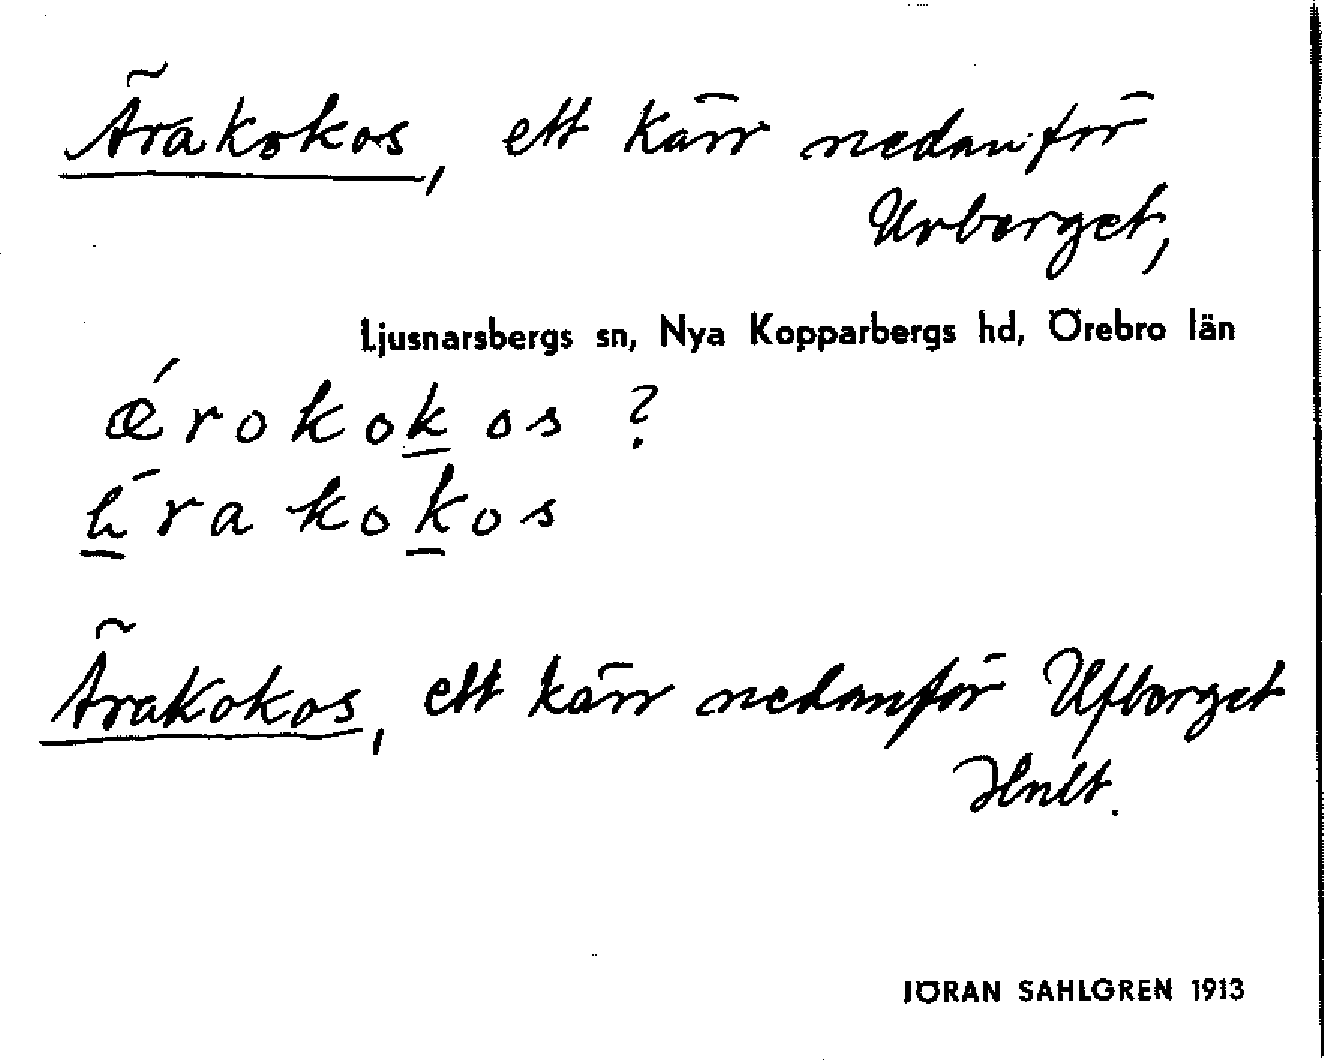 Ärakokos, ett kärr nedanför
Urberget,
Ljusnarsbergs sn, Nya Kopparbergs hd, Örebro län
ǽrokokos ?
rakokos
Ärakokos, ett kärr nedanför Ufberget
Hult.
JÖRAN SAHLGREN 1913